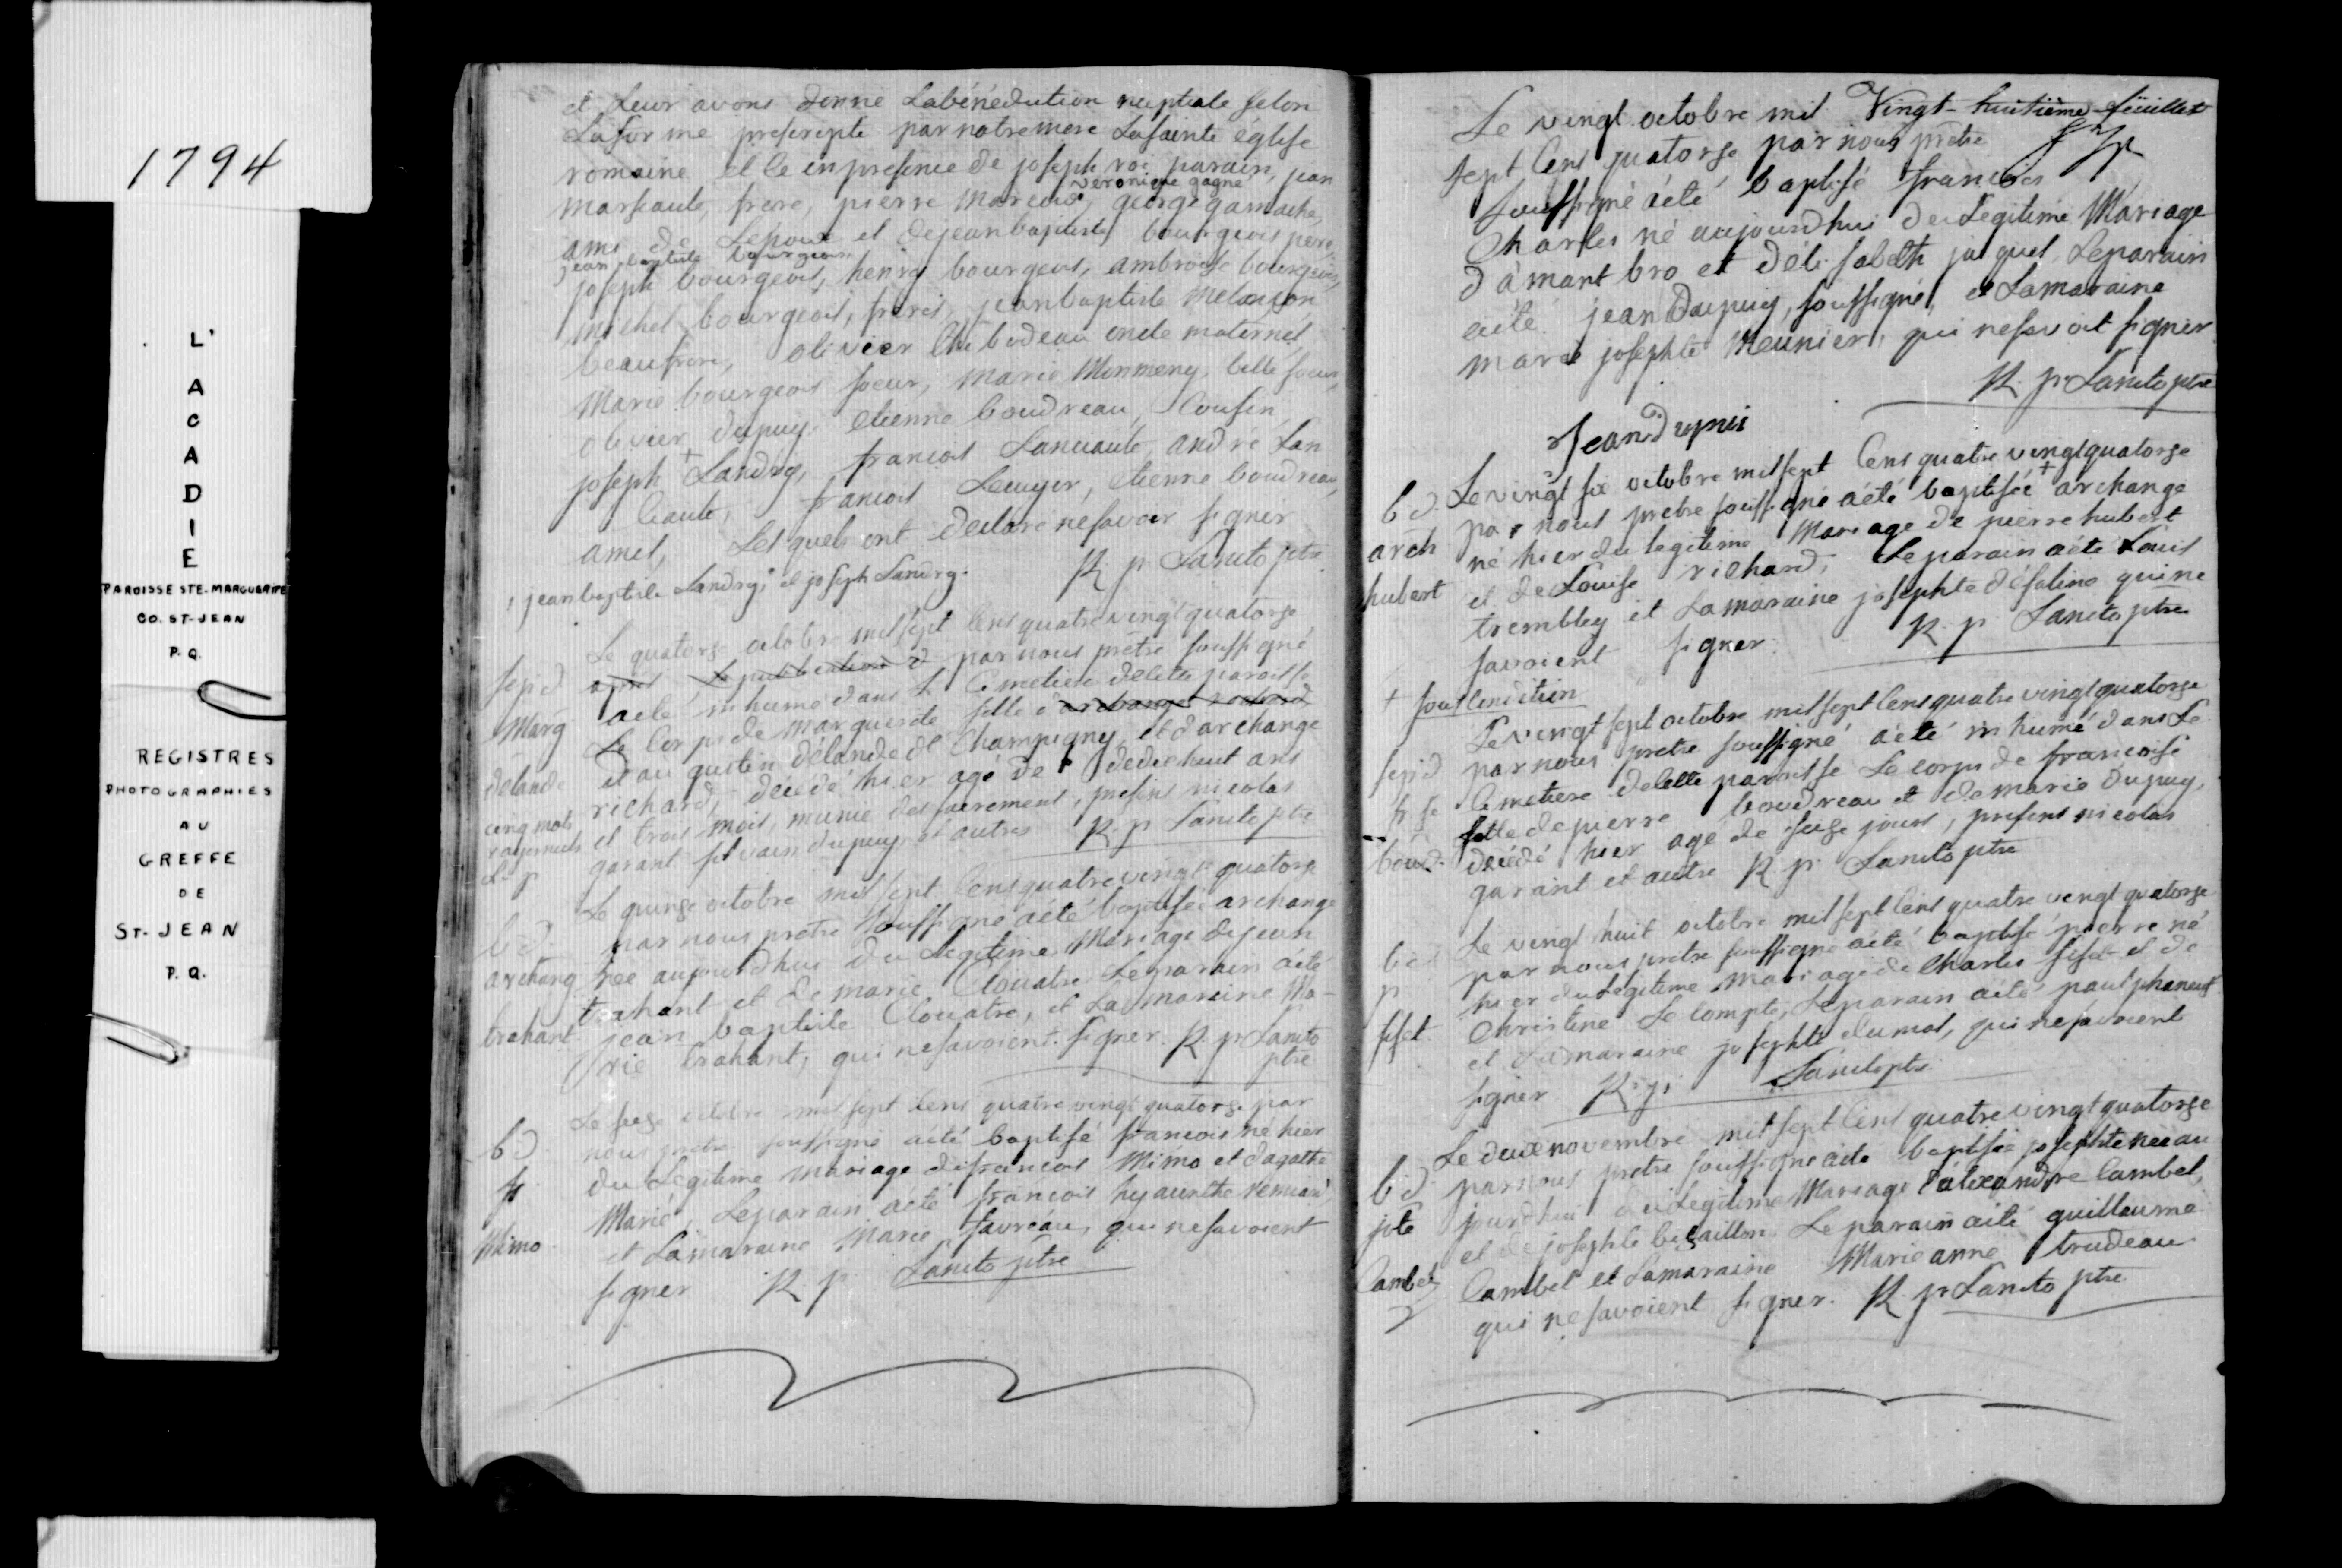 1794
L'
A
C
A
D
I
E
PAROISSE STE-MARGUERITE
CO. ST-JEAN
P.Q.
REGISTRES
PHOTOGRAPHIES
AU
GREFFE
DE
ST-JEAN
P.Q.
et leur avons donné Labénédiction nuptiale selon
Laforme prescripte par notre mere Lasainte église
romaine et ce en presence de joseph roi parain, jean
marsault, frere, pierre Marcoux, veronique gagné george gamache,
ami de Lepoux et de jean baptiste bourgeois pere,
jean baptiste bourgeois
joseph bourgeois, henry bourgeois, ambroise bourgeois,
michel bourgeois, freres, jean baptiste melançon
beaufrere, olivier thibodeau oncle maternel,
Marie bourgeois soeur, marie Monmeny, belle soeur,
olivier dupuy, etienne boudreau, Cousin,
joseph + Landry, francois Lanciault, andré Lan
ciault, francois Lecuyer, etienne boudreau,
amis, Lesquels ont declaré nesavoir signer
R. p Lancto ptre
+ jean baptiste Landry, et joseph Landry.
Le quatorze octobre mil sept Cens quatre vingt quatorze
sep d après La publication d par nous prêtre soussigné
Marg aeté inhumé dans Le Cimetiere decette paroisse
Le Corps de marguerite fille d archange richard
délande d'augustin délande dt Champigny et d'archange
cinq mots richard, décédé hier agé de dedixhuit ans
rayés nuls et trois mois, munie des sacrements, présens nicolas
L. p garant silvain dupuy et autres R. p Lancto ptre
Le quinze octobre mil sept Cens quatre vingt quatorze
b d. par nous prêtre soussigné aété baptisée archange
archang née aujourdhui du Legitime Mariage de jean
trahant et de marie Clouatre Leparain aété
trahant. jean baptiste Clouatre, et La maraine Ma-
rie trahant, qui nesavoient signer. R. p Lancto
ptre
Le seize octobre mil sept Cens quatre vingt quatorze par
b d. nous prêtre soussigné aété baptisé francois né hier
fs du Legitime mariage de francois Mimo et dagathe
Marié, Leparain aété francois hyacinthe
Mimo. et Lamaraine Marie favreau, qui nesavoient
signer R. p. Lancto ptre
Vingt-huitième feüillet
Le vingt octobre mil
sept Cens quatorze par nous prêtre
soussigné aété baptisé francois
Charles né aujourdhui du Legitime Mariage
d'amant bro et d'élisabeth jaques Leparain
aété jean Dupuy, soussigné, et Lamaraine
marie josephte Meunier, qui nesavoit signer
R. p Lancto ptre
Jean Dupuis
Le vingt six octobre mil sept Cens quatre vingt quatorze
b d. par nous prêtre soussigné aété baptisée + archange
arch né hier du legitime Mariage de pierre hubert
hubert et de Louise richard, Le parain aété Louis
trembley et Lamaraine josephte qui ne
savoient signer. R. p. Lancto ptre
+ sous Condition
Le vingt sept octobre mil sept Cens quatre vingt quatorze
sep d par nous prêtre soussigné aété inhumé dans Le
fr se Cimetiere decette paroisse Le corps de francoise
fille de pierre boudreau et de marie dupuy,
boud. décédé hier agé de seize jours, présens nicolas
garant et autre R. p. Lancto ptre
Le vingt huit octobre mil sept Cens quatre vingt quatorze
b d par nous prêtre soussigné aété baptisé pierre né
p hier du Legitime mariage de Charles fiset et de
fiset. Christine Le Compte, Leparain aété paul phaneuf
et Lamaraine josephte dumas, qui nesavoient
signer R. p. Lancto ptre
Le deux novembre mil sept Cens quatre vingt quatorze
b d par nous prêtre soussigné aété baptisée josephte née au
jste jourdhui du Legitime Mariage d'alexandre Cambel,
et de josephte bisaillon. Le parain aété guillaume
Cambel Cambel et Lamaraine Marie anne trudeau
qui nesavoient signer. R. p Lancto ptre